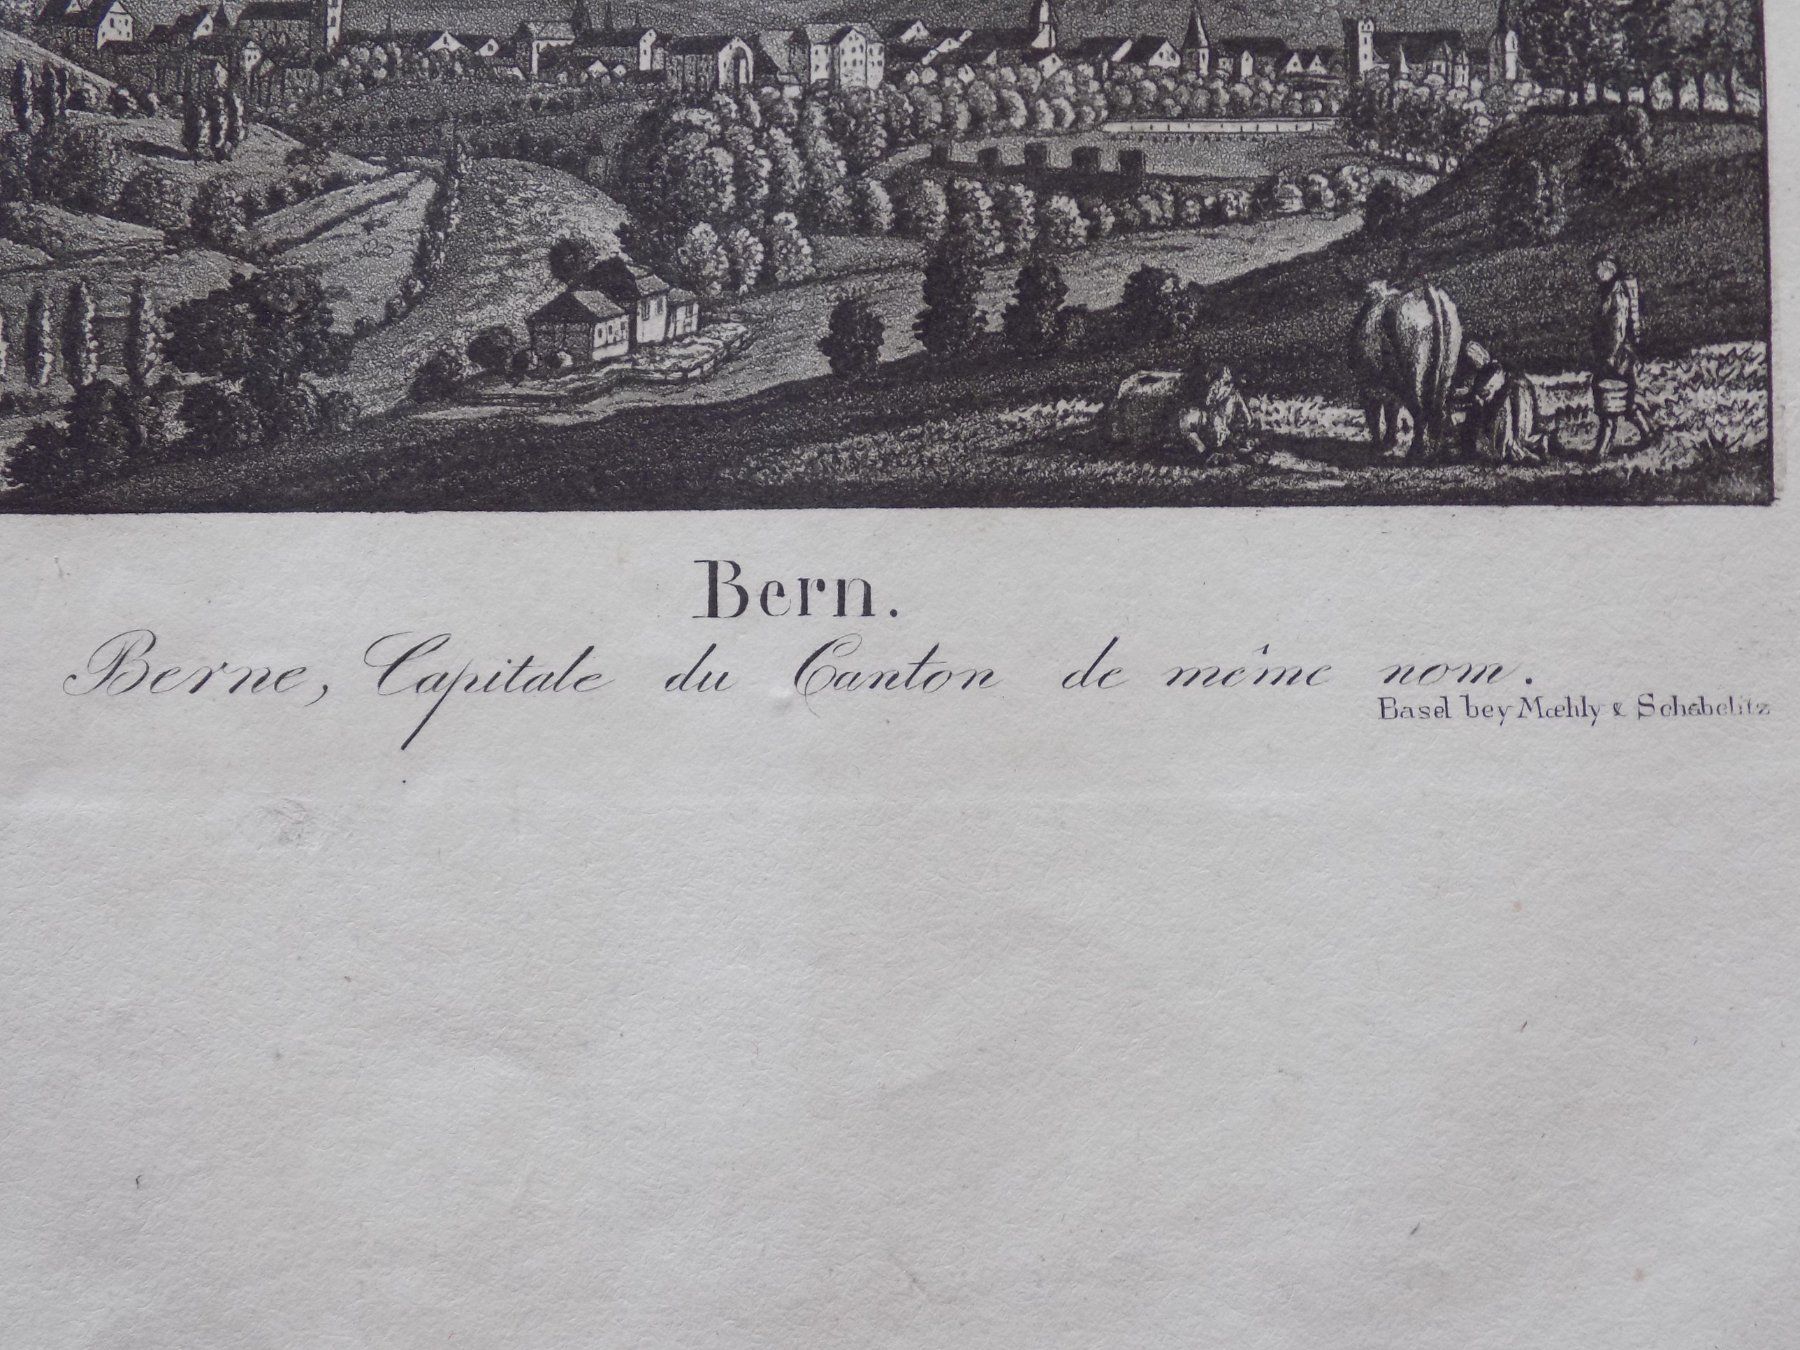 Bern.
Berne, Capitale du Canton de même nom.
Basel bey Mœhly & Schabelitz